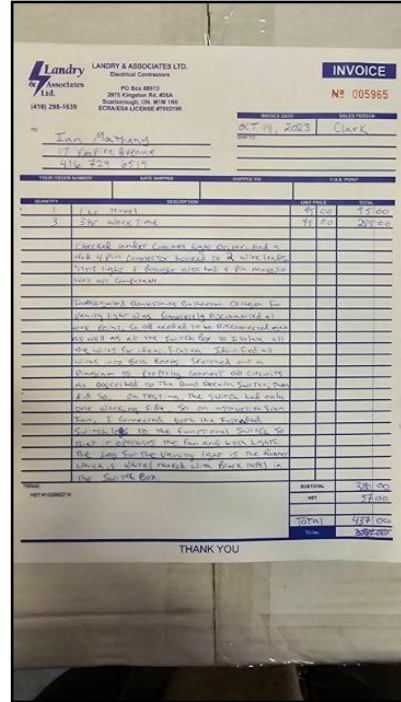 Landry & Associates Ltd.
(416) 298-1639
LANDRY & ASSOCIATES LTD.
Electrical Contractors
PO Box 88013
2975 Kingston Rd. #26A
Scarborough, ON. M1M 1N0
ECRA/ESA LICENSE #7002186
INVOICE
Nº 005965
INVOICE DATE
SALES PERSON
OCT 19, 2023
Clark
TO
Ian Matheny
17 Empire Avenue
416 729 6519
YOUR ORDER NUMBER
DATE SHIPPED
SHIPPED VIA
F.O.B. POINT
QUANTITY
DESCRIPTION
UNIT PRICE
TOTAL
1 1 hr Travel 95 00 95 00
3 3 hr Work Time 95 00 285 00
Checked under Cabinet Light Driver. Had a
4 Pin Connector hooked to 2 wire leads.
Strip light I Bought also had 4 Pin male, so
was not Compatable.
Investigated Downstairs Bathroom
Vanity light was Completely Disconnected at
one Point, so all needed to be Disconnected
as well as at the Switch Box to Isolate all
the wires for identification. Identified all
wires into Both Boxes. Sketched out a
Diagram to Properly Connect all Circuits
as Described to The Dual Decora Switch, then
did so. On Testing, the Switch had only
one working Side, So on instruction from
Ian, I Connected both the
Switch legs to the functional Switch So
that it operates the Fan and both lights.
The Leg for the Vanity light is the
which is white (marked with Black tape) in
the Switch Box.
TERMS:
SUBTOTAL 380 00
HST 57 00
Total 437 00
TOTAL
THANK YOU